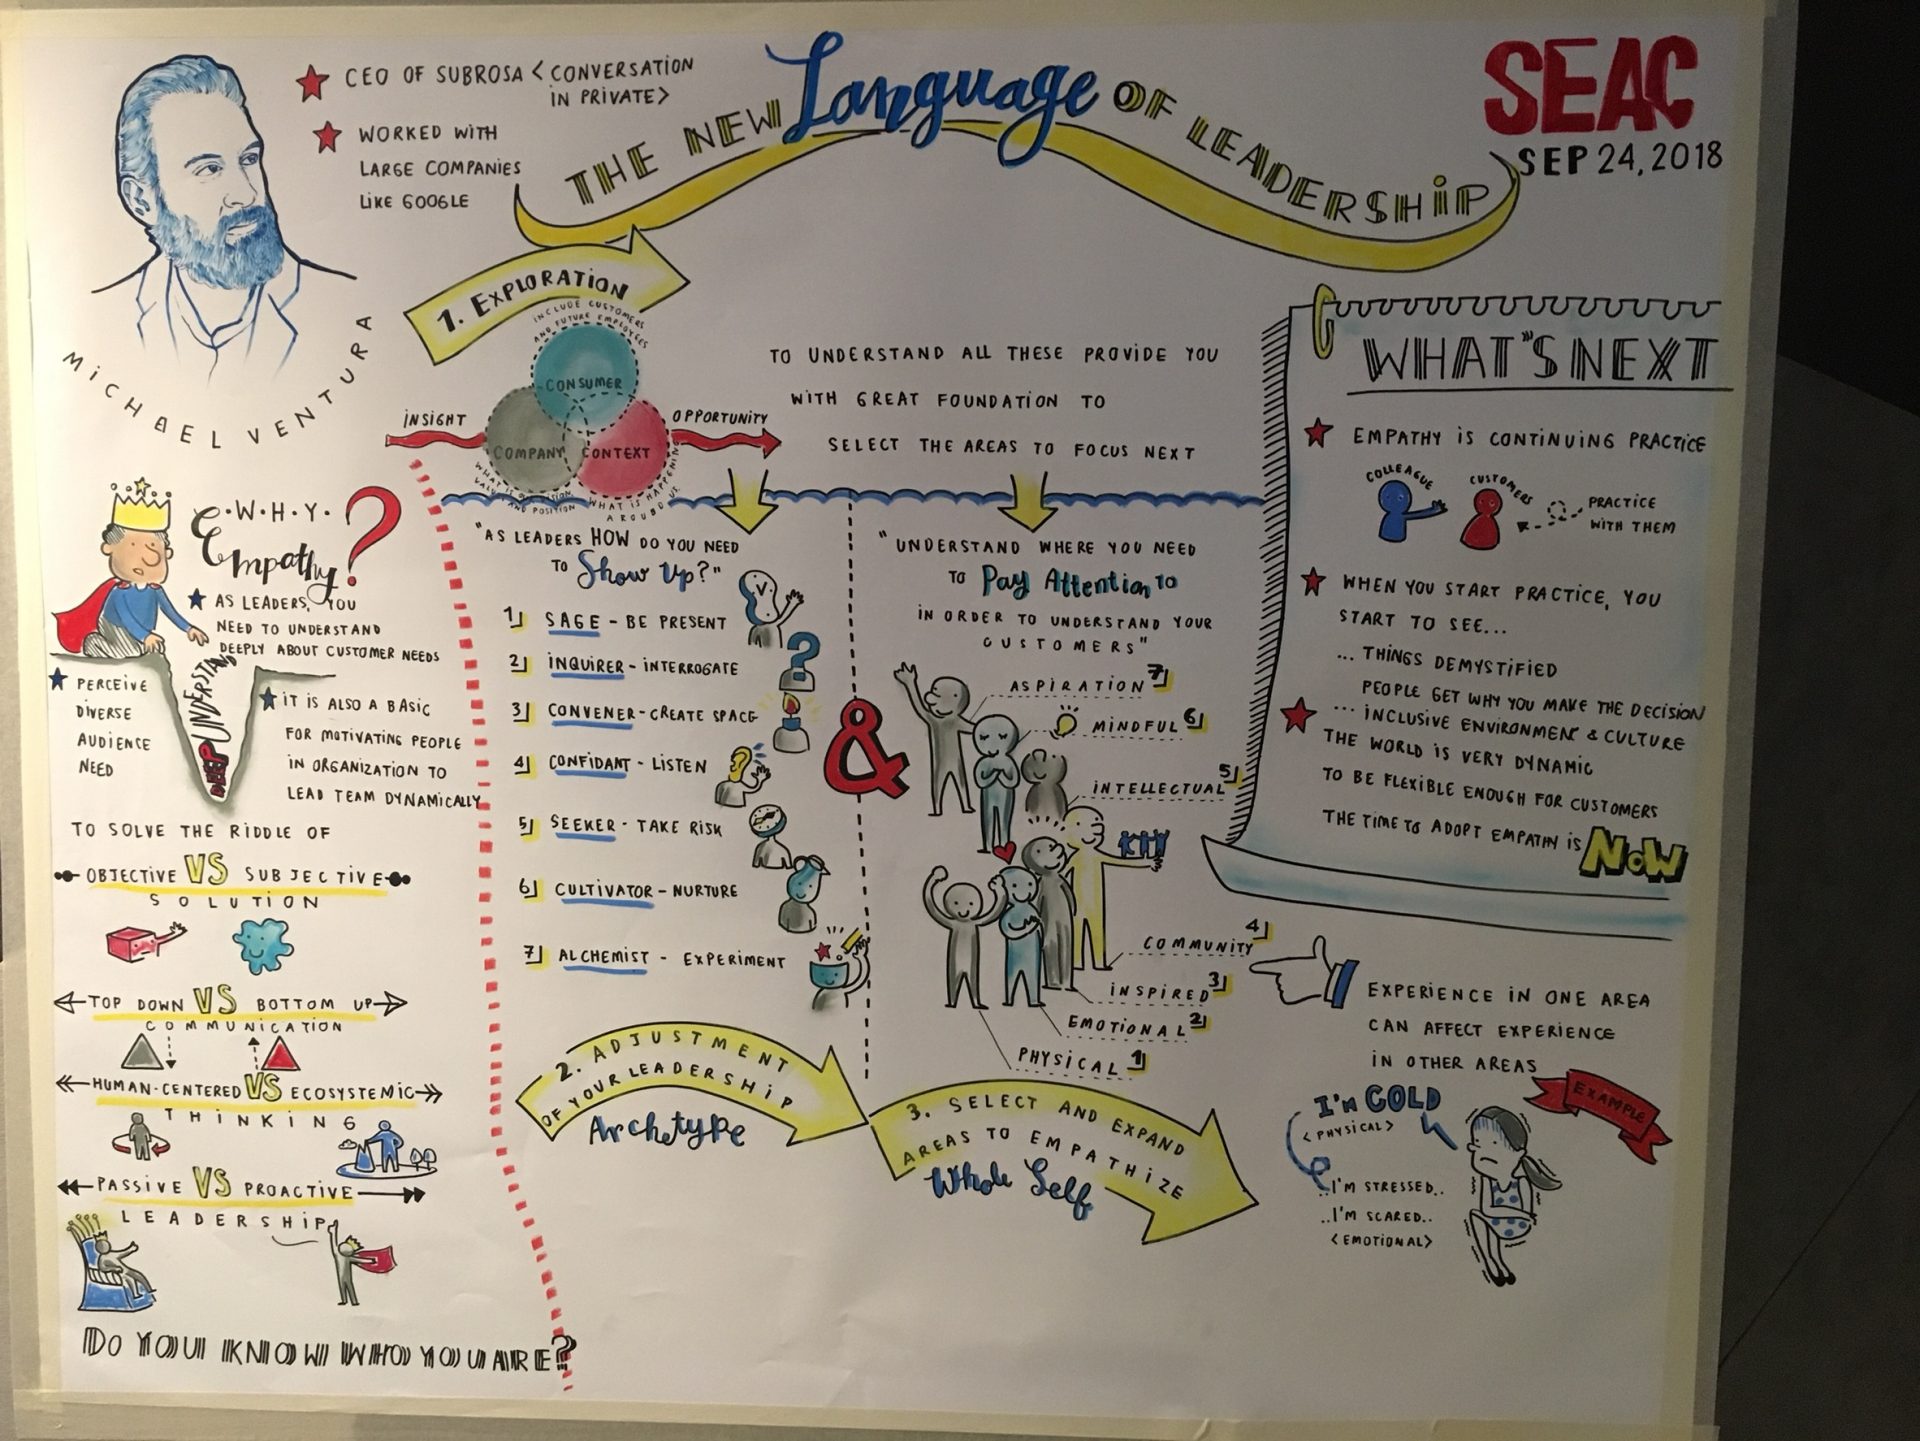 CEO OF SUBROSA < CONVERSATION
IN PRIVATE>
WORKED WITH
LARGE COMPANIES
LIKE GOOGLE
MICHAEL VENTURA
THE NEW Language OF LEADERSHIP
SEAC
SEP 24, 2018
W·H·Y·
Empathy?
AS LEADERS, YOU
NEED TO UNDERSTAND
DEEPLY ABOUT CUSTOMER NEEDS
PERCEIVE
DIVERSE
AUDIENCE
NEED
DEEP UNDERSTAND
IT IS ALSO A BASIC
FOR MOTIVATING PEOPLE
IN ORGANIZATION TO
LEAD TEAM DYNAMICALLY
TO SOLVE THE RIDDLE OF
OBJECTIVE VS SUBJECTIVE
SOLUTION
TOP DOWN VS BOTTOM UP
COMMUNICATION
HUMAN-CENTERED VS ECOSYSTEMIC
THINKING
PASSIVE VS PROACTIVE
LEADERSHIP
DO YOU KNOW WHO YOU ARE?
1. EXPLORATION
INCLUDE CUSTOMERS
AND FUTURE EMPLOYEES
CONSUMER
INSIGHT
OPPORTUNITY
COMPANY
CONTEXT
VALUE AND POSITION
WHAT IS HAPPENING
AROUND US
TO UNDERSTAND ALL THESE PROVIDE YOU
WITH GREAT FOUNDATION TO
SELECT THE AREAS TO FOCUS NEXT
"AS LEADERS HOW DO YOU NEED
TO Show Up?"
1 SAGE - BE PRESENT
2 INQUIRER - INTERROGATE
3 CONVENER - CREATE SPACE
4 CONFIDANT - LISTEN
5 SEEKER - TAKE RISK
6 CULTIVATOR - NURTURE
7 ALCHEMIST - EXPERIMENT
2. ADJUSTMENT
OF YOUR LEADERSHIP
Archetype
&
"UNDERSTAND WHERE YOU NEED
TO Pay Attention TO
IN ORDER TO UNDERSTAND YOUR
CUSTOMERS"
ASPIRATION 7
MINDFUL 6
INTELLECTUAL 5
COMMUNITY 4
INSPIRED 3
EMOTIONAL 2
PHYSICAL 1
3. SELECT AND EXPAND
AREAS TO EMPATHIZE
Whole Self
WHAT"S NEXT
EMPATHY IS CONTINUING PRACTICE
COLLEAGUE
CUSTOMERS
PRACTICE
WITH THEM
WHEN YOU START PRACTICE, YOU
START TO SEE...
... THINGS DEMYSTIFIED
PEOPLE GET WHY YOU MAKE THE DECISION
... INCLUSIVE ENVIRONMENT & CULTURE
THE WORLD IS VERY DYNAMIC
TO BE FLEXIBLE ENOUGH FOR CUSTOMERS
THE TIME TO ADOPT EMPATHY IS NOW
EXPERIENCE IN ONE AREA
CAN AFFECT EXPERIENCE
IN OTHER AREAS
EXAMPLE
I'M COLD
<PHYSICAL>
..I'M STRESSED..
..I'M SCARED..
<EMOTIONAL>